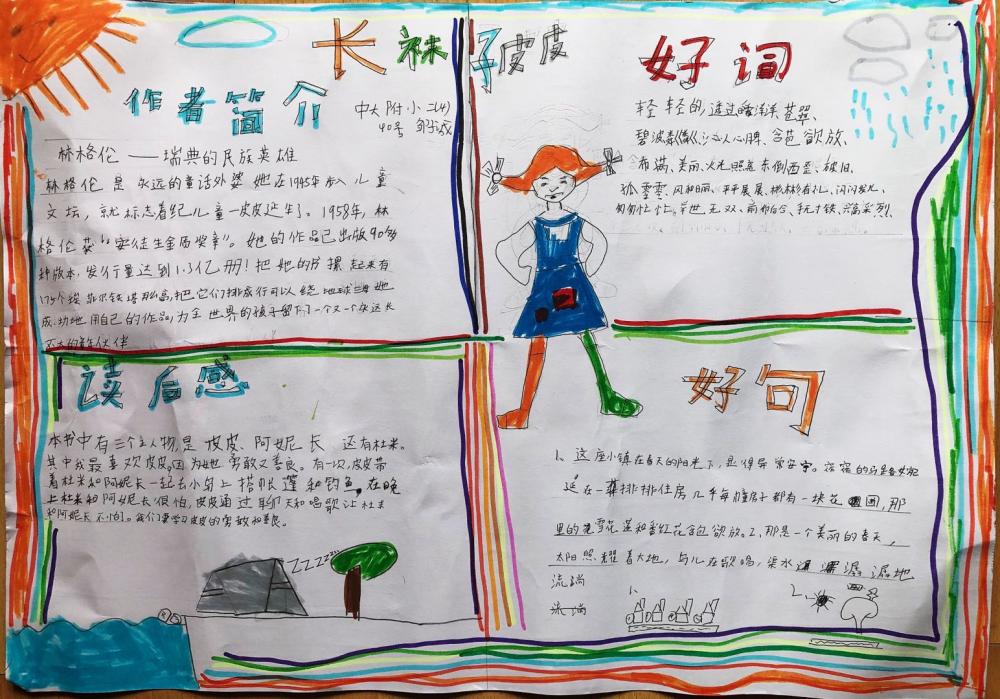 长袜子皮皮
作者简介
中大附小二(4)
40号
林格伦——瑞典的民族英雄
林格伦是永远的童话外婆 她在1945年步入儿童
文坛，就标志着纪儿童一皮皮诞生了。1958年，林
格伦获“安徒生金质奖章”。她的作品已出版90多
种版本，发行量达到1.3亿册！把她的书摞起来有
175个埃菲尔铁塔那么高，把它们排成行可以绕地球三周 她
成功地用自己的作品，为全世界的孩子留下了一个又一个永远长
不大的童年伙伴
好词
轻轻的，透过 暖洋洋、苍翠、
碧波 沁人心脾、含苞欲放、
布满、美丽、火光照 东倒西歪、破旧、
孤零零、风和日丽、平平展展、彬彬有礼、闪闪发光、
匆匆忙忙、举世无双、前俯后合、手无寸铁、
读后感
本书中有三个主人物，是 皮皮、阿妮长 还有杜米。
其中我最喜欢皮皮，因为她 勇敢又善良。有一次，皮皮带
着杜米和阿妮长一起去小岛上搭帐篷和钓鱼，在晚
上杜米和阿妮长很怕，皮皮通过聊天和唱歌让杜米
和阿妮长不怕。我们要学习皮皮的勇敢和善良。
ZZZZZ
好句
1、这座小镇在春天的阳光下，显得异常安宁。
延在一 排排住房 几乎每幢房子都有一块花 园，那
里的 雪花莲和番红花含苞欲放。2、那是一个美丽的春天，
太阳照耀着大地，鸟儿在歌唱，渠水 潺潺地
流淌
流淌
1、
2、